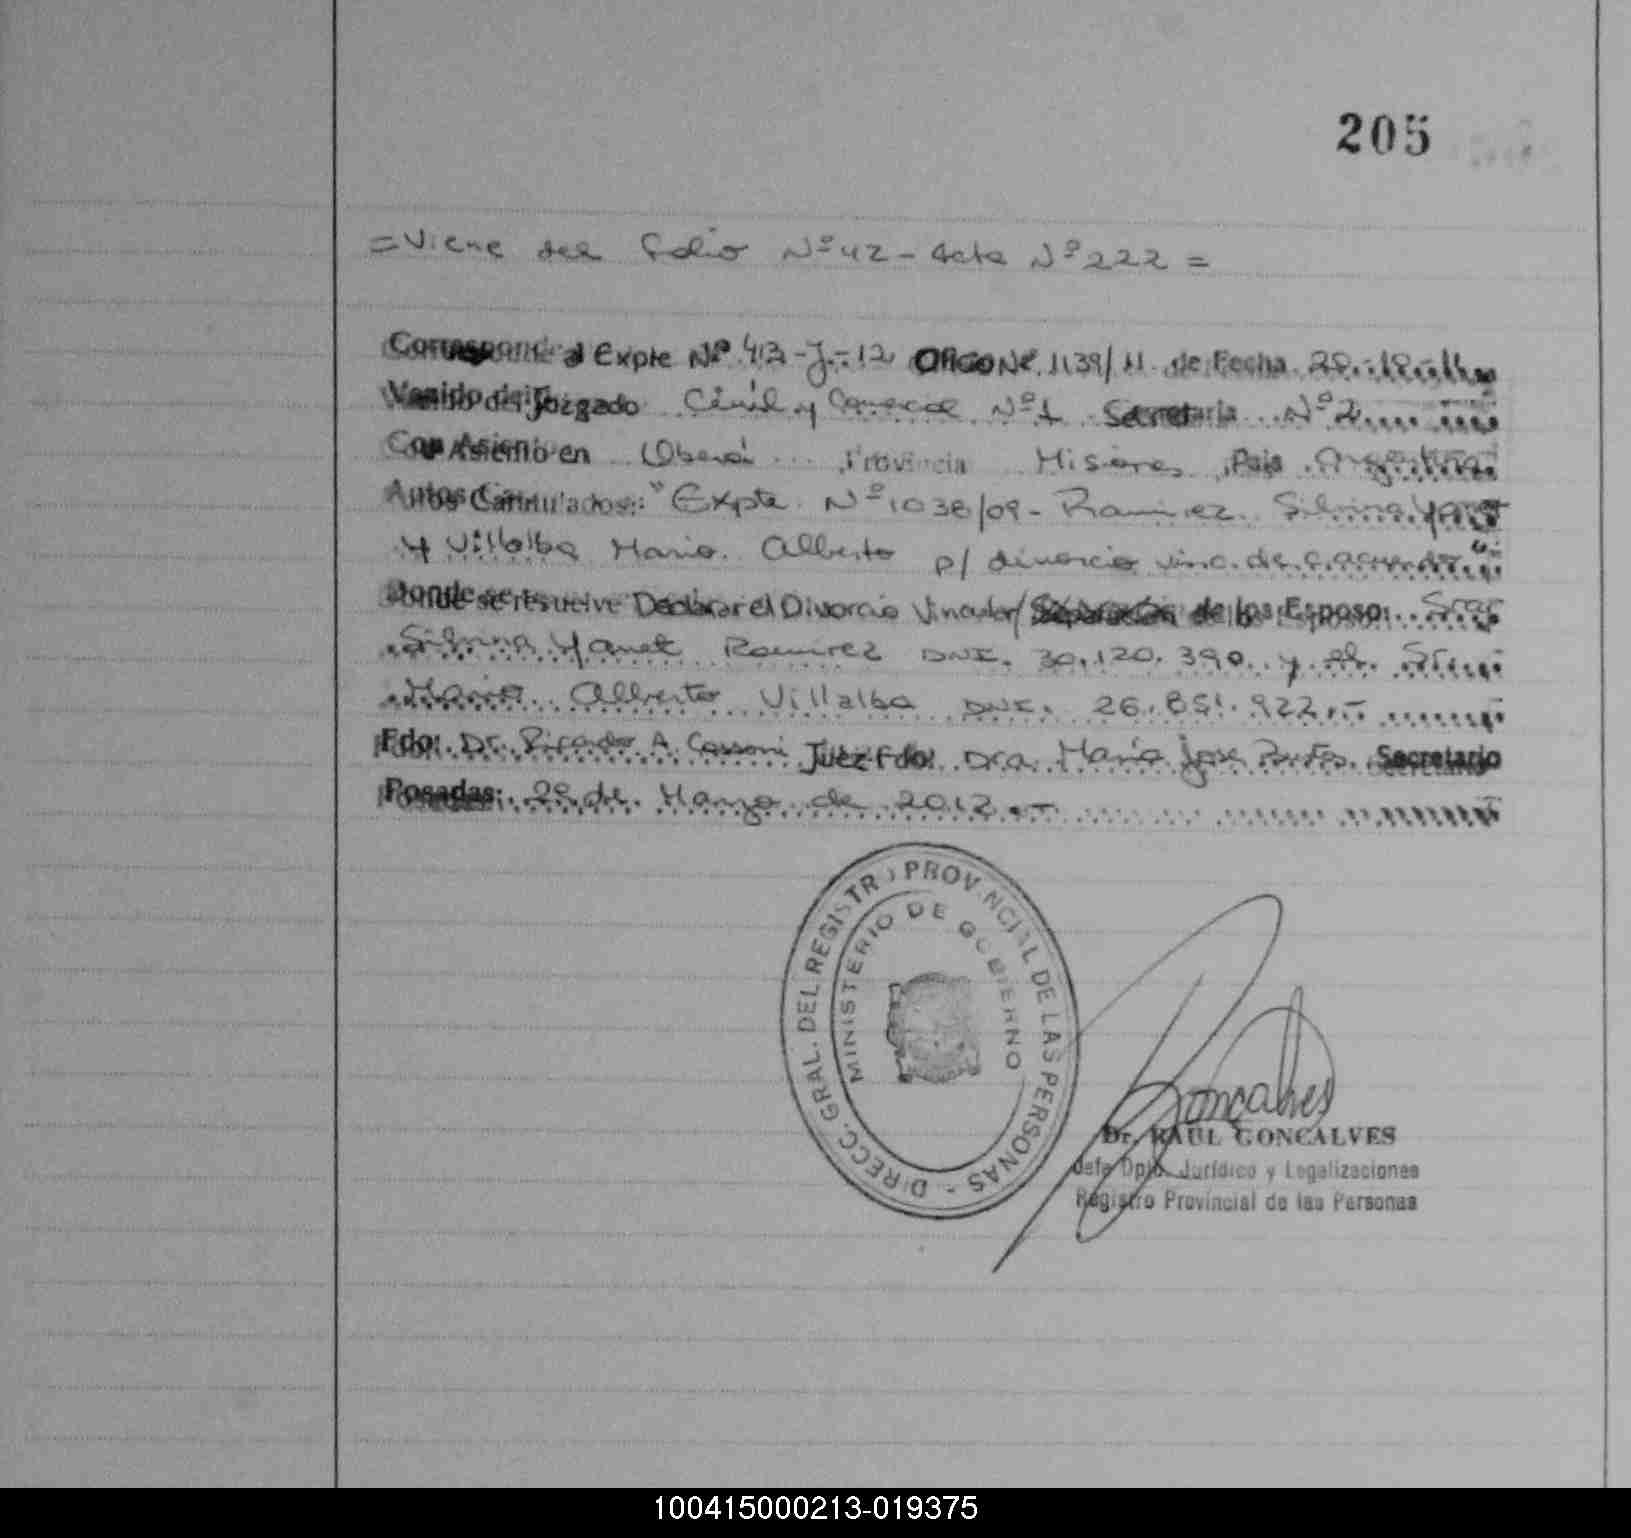 205
=Viene del folio Nº42-Acta Nº222=
Corresponde al Expte Nº 413-J-12 Oficio Nº 1139/11 de Fecha 20-10-11
Venido del Juzgado Civil y Comercial Nº1 Secretaria Nº2
Con Asiento en Oberá Provincia Misiones Pais Argentina
Autos Caratulados: "Expte. Nº1038/09-Ramirez Silvina Yanet
y Villalba Mario Alberto p/ divorcio vinc. de c. acuerdo"
Donde se resuelve Declarar el Divorcio Vincular/Separación de los Esposo: Sra
Silvina Yanet Ramirez DNI. 30.120.390 y el Sr
Mario Alberto Villalba DNI. 26.851.922.-
Fdo: Dr. Ricardo A. Cassoni Juez Fdo: Dra. María Jose Secretario
Posadas: 29 de Marzo de 2012.-
DIRECC. GRAL. DEL REGISTRO PROVINCIAL DE LAS PERSONAS -
MINISTERIO DE GOBIERNO
Goncalves
Dr. RAUL GONCALVES
Jefe Dpto. Jurídico y Legalizaciones
Registro Provincial de las Personas
100415000213-019375